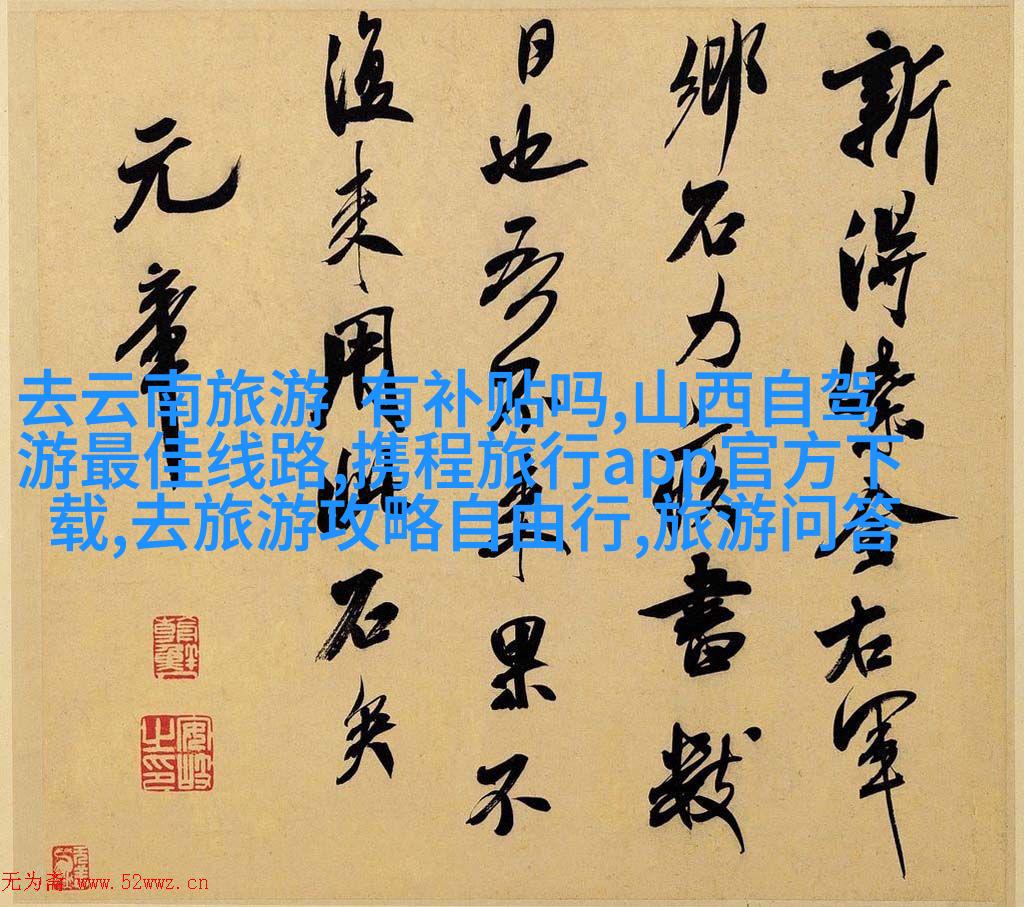 新得紫金右軍
鄉石力疾書數
日也吾不來果不
復來用此石矣
元章
安岐之印
去云南旅游 有补贴吗,山西自驾
游最佳线路,携程旅行app官方下
载,去旅游攻略自由行,旅游问答
无为斋 www.52wwz.cn